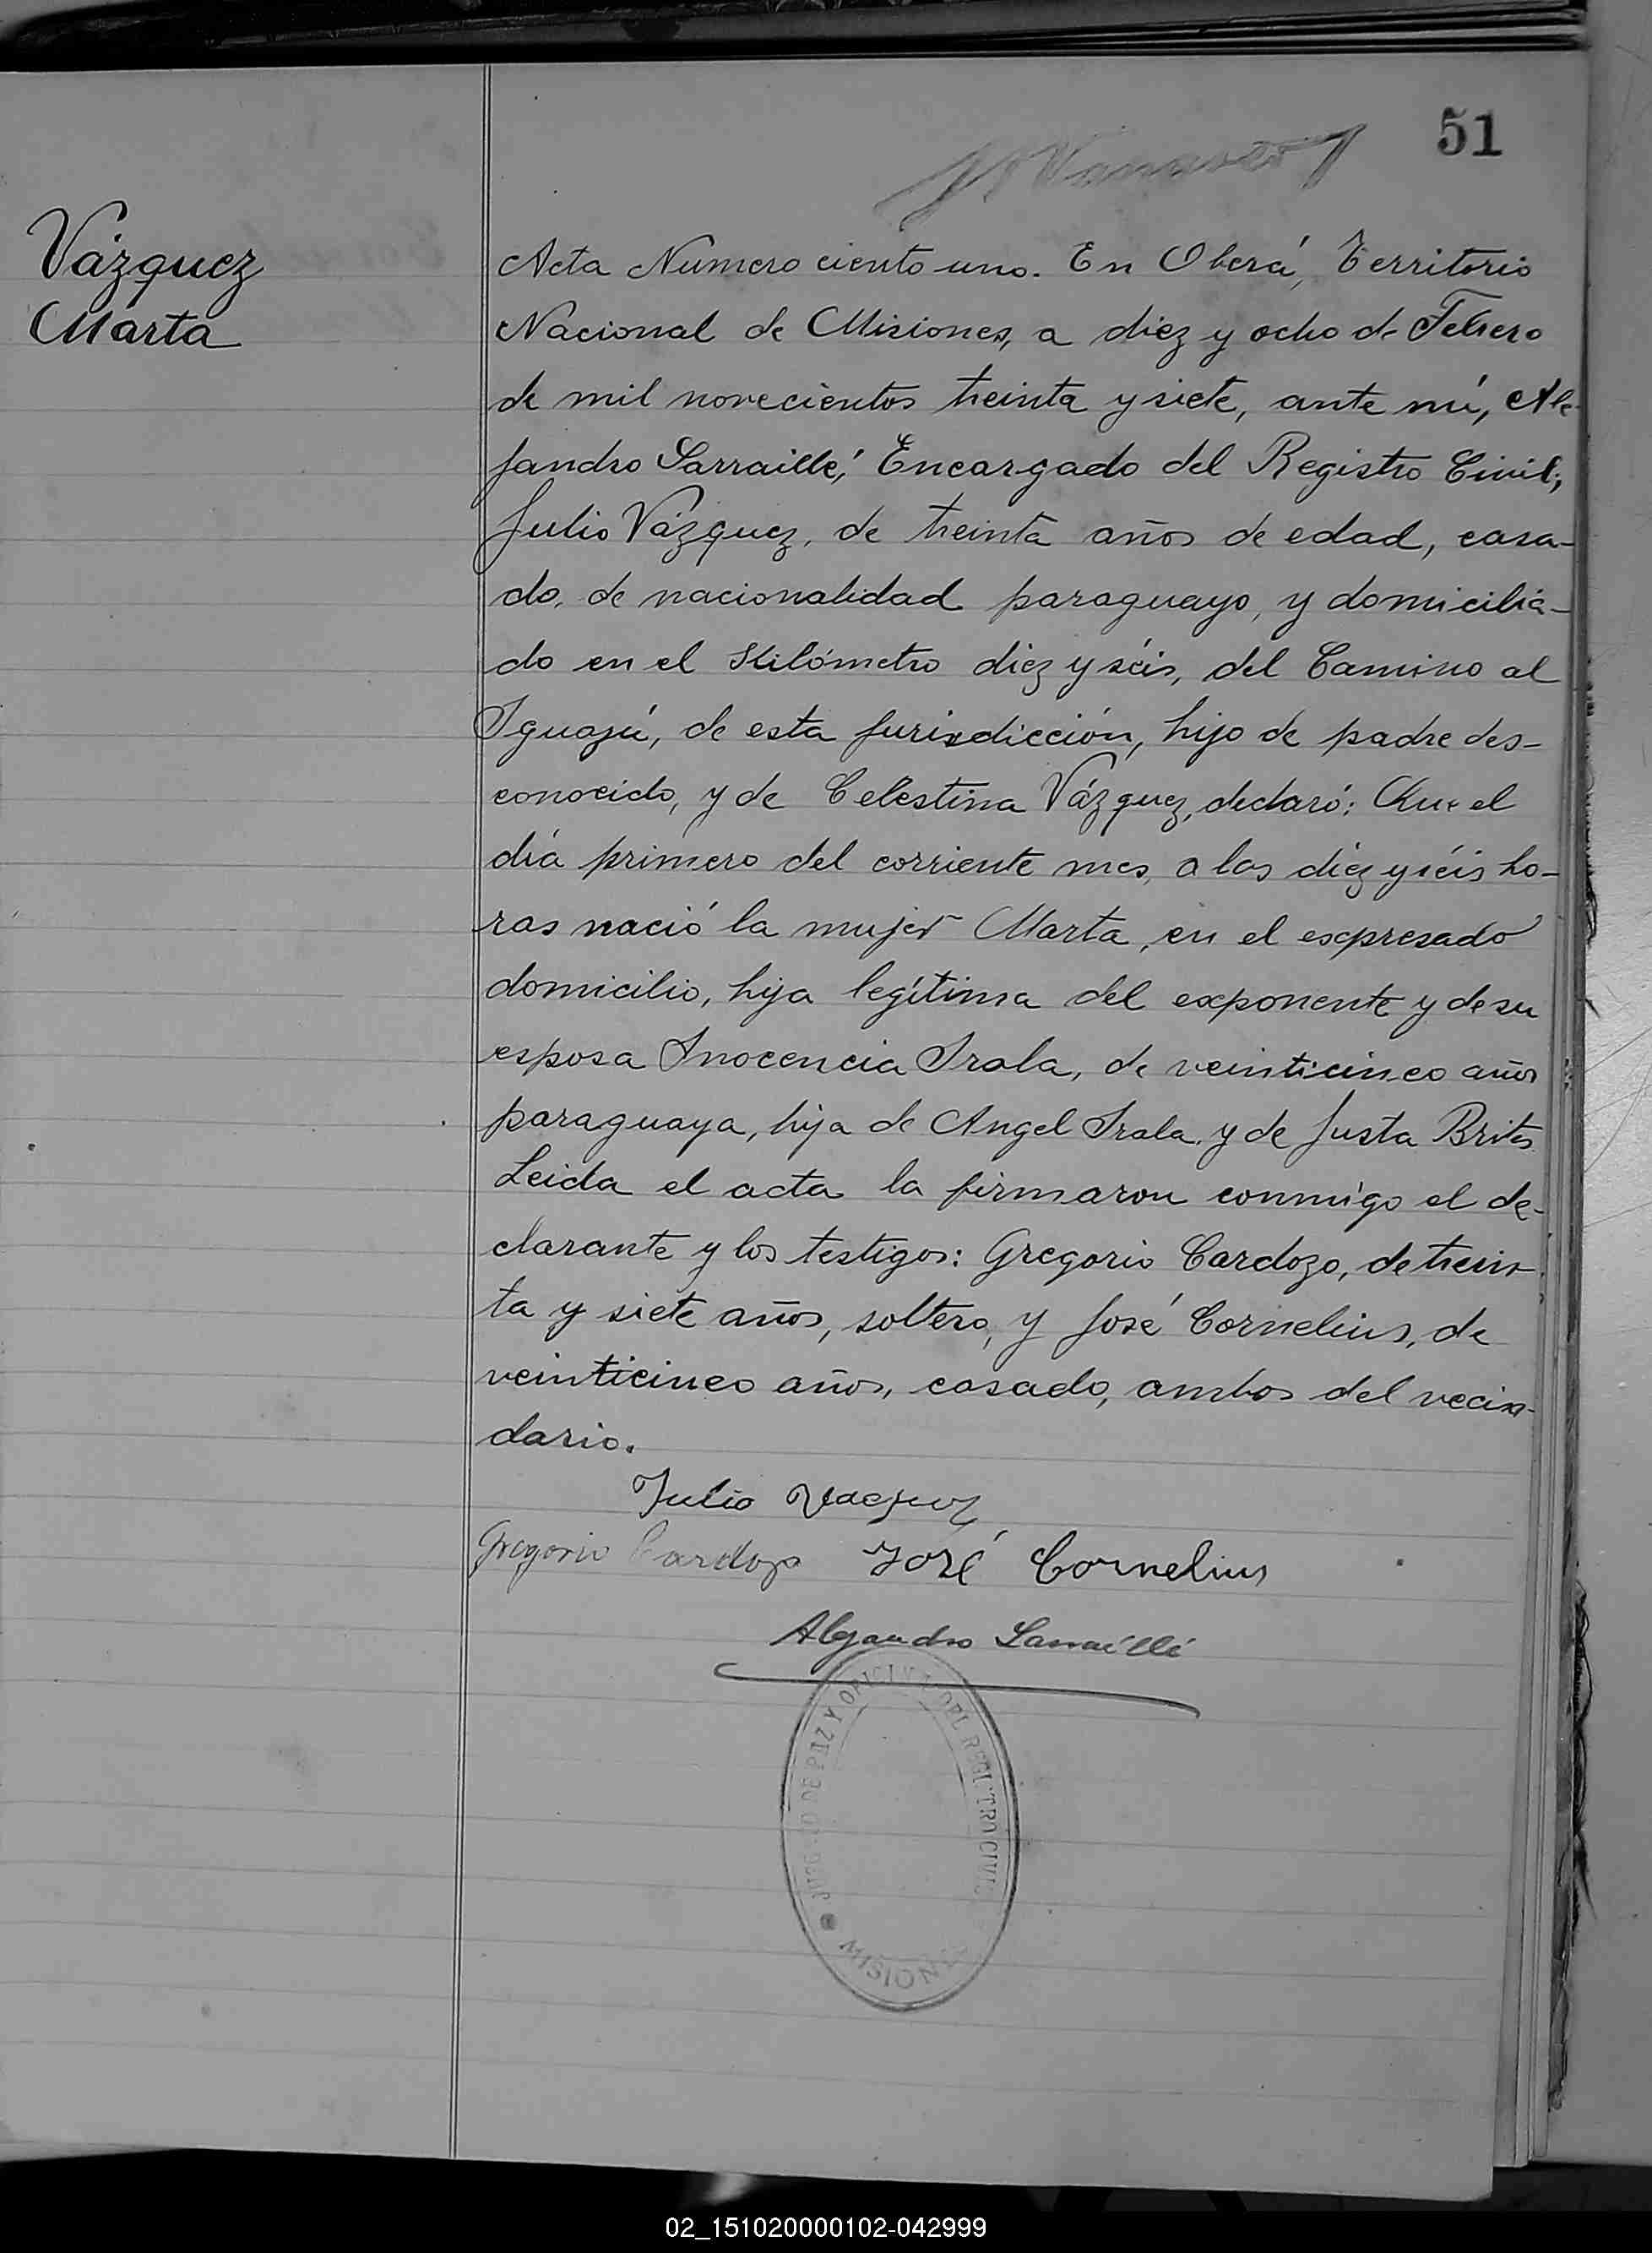 51
Vázquez
Marta
Acta Numero ciento uno. En Oberá, Territorio
Nacional de Misiones, a diez y ocho de Febrero
de mil novecientos treinta y siete, ante mí, Ale-
jandro Sarraillé, Encargado del Registro Civil;
Julio Vázquez, de treinta años de edad, casa-
do, de nacionalidad paraguayo, y domicilia-
do en el Kilómetro diez y séis, del Camino al
Iguazú, de esta jurisdicción, hijo de padre des-
conocido, y de Celestina Vázquez, declaró: Que el
día primero del corriente mes, a las diez y séis ho-
ras nació la mujer Marta, en el expresado
domicilio, hija legítima del exponente y de su
esposa Inocencia Irala, de veinticinco años
paraguaya, hija de Angel Irala, y de Justa Brites
Leida el acta la firmaron conmigo el de-
clarante y los testigos: Gregorio Cardozo, de trein-
ta y siete años, soltero, y José Cornelius, de
veinticinco años, casado, ambos del vecin-
dario.
Julio Vazquez
Gregorio Cardozo José Cornelius
Alejandro Sarraillé
JUZGADO DE PAZ Y OFICINA DEL REGISTRO CIVIL
MISIONES
02_151020000102-042999